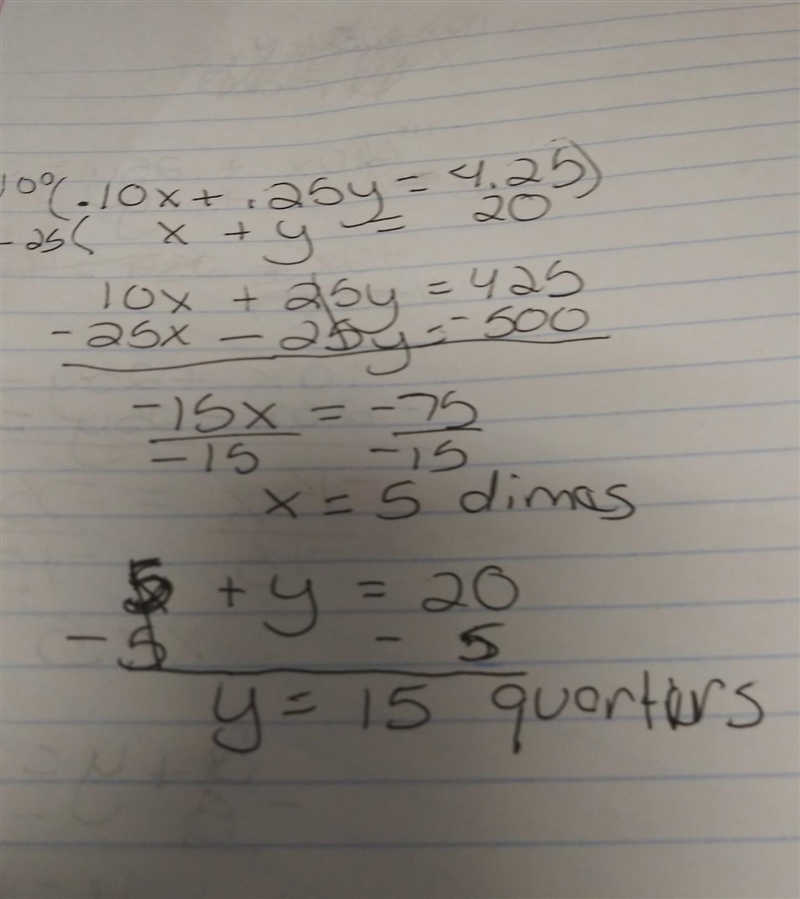 100(.10x + .25y = 4.25)
-25( x + y = 20
10x + 25y = 425
-25x - 25y = -500
-15x = -75
-15 -15
x = 5 dimes
5 + y = 20
-5 - 5
y = 15 quarters